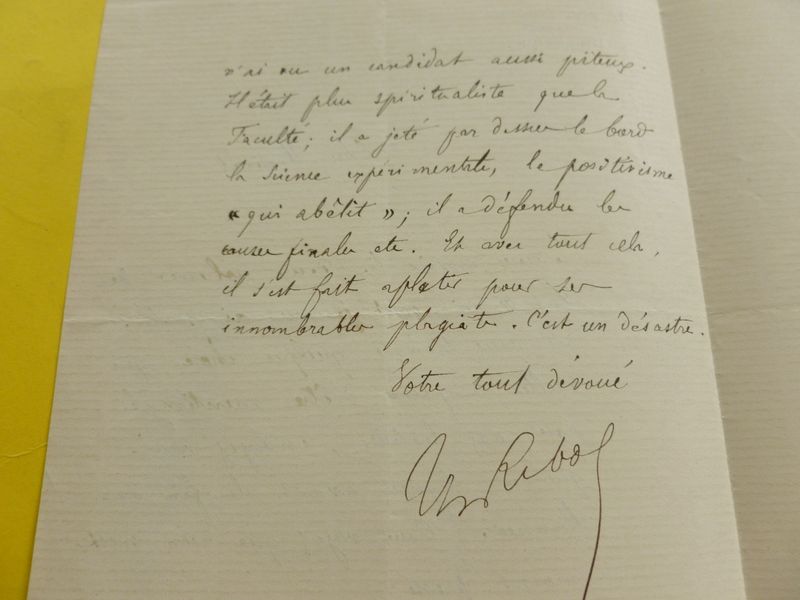 n'ai vu un candidat aussi piteux.
Il était plus spiritualiste que la
Faculté ; il a jeté par dessus le bord
la Science expérimentale, le positivisme
« qui abêtit » ; il a défendu les
causes finales etc. Et avec tout cela,
il s'est fait aplatir pour ses
innombrables plagiats. C'est un désastre.
Votre tout dévoué
Th Ribot